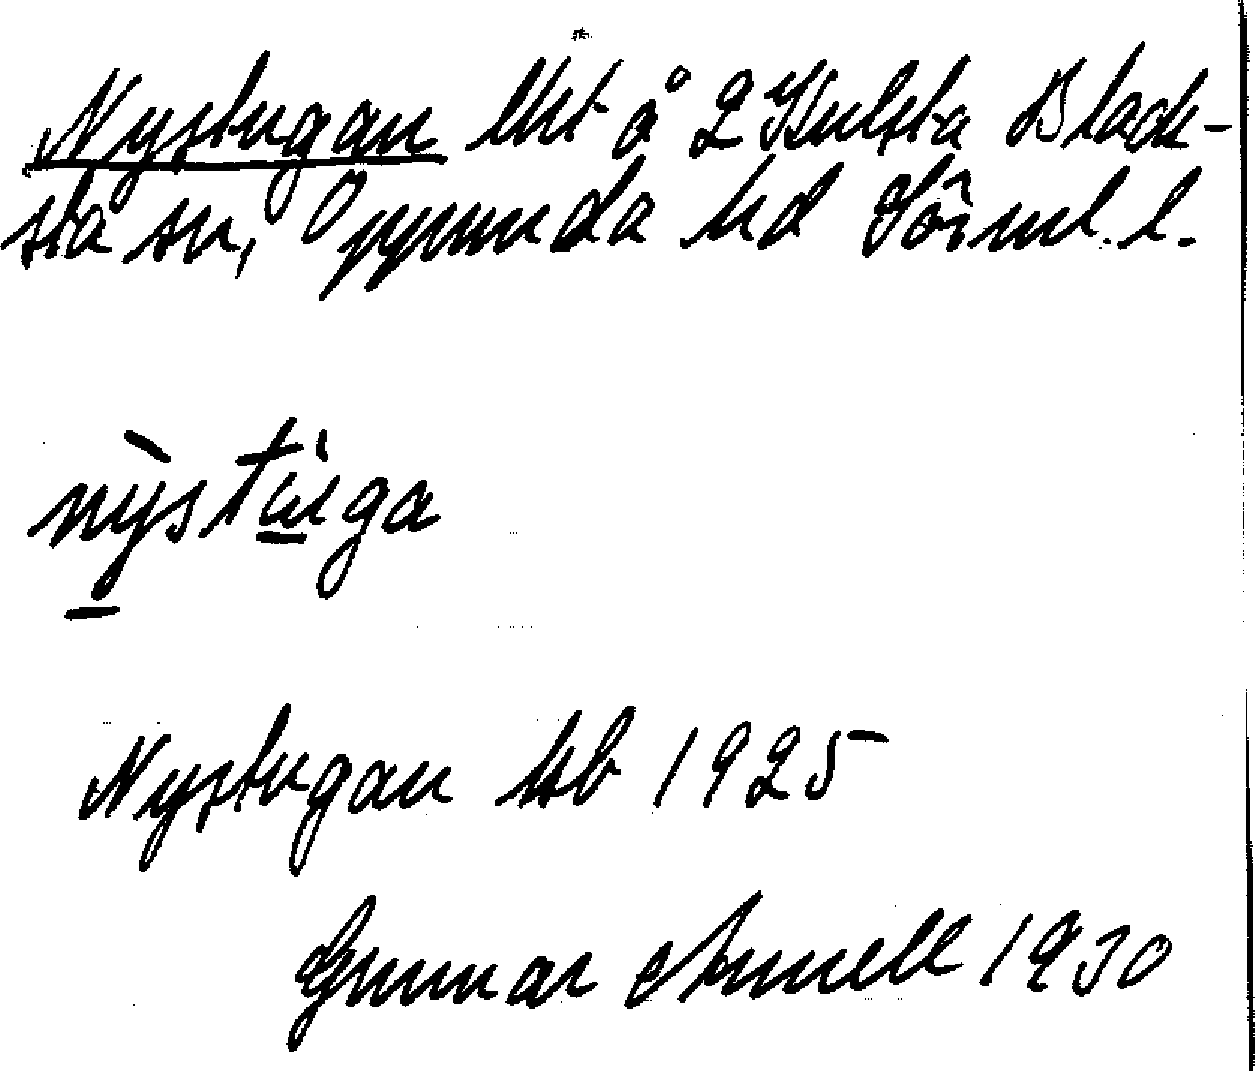 Nystugan lht å 2 Hulsta Black-
sta sn, Oppunda hd Sörml. l.
nỳstùga
Nystugan hb 1925
Gunnar Arnell 1930